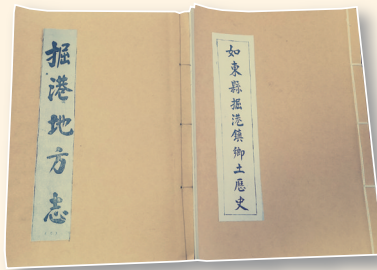 掘港地方志
如東縣掘港鎮鄉土歷史